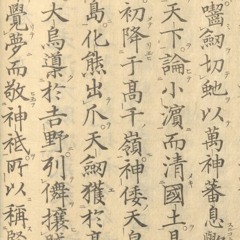 囓劒切虵以萬神蕃息歟
天下論小濱而清國土是
初降于高千嶺神倭天皇
島化熊出爪天劒獲於高
大烏導於吉野列儛攘賊
覺夢而敬神祇所以稱賢